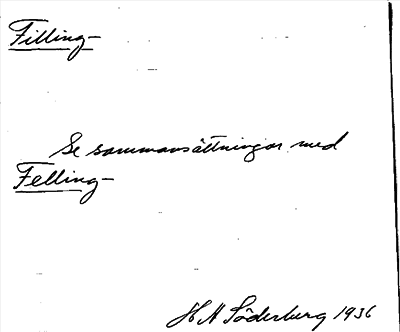 Filling-
Se sammansättningar med
Felling-
H N Söderburg 1936